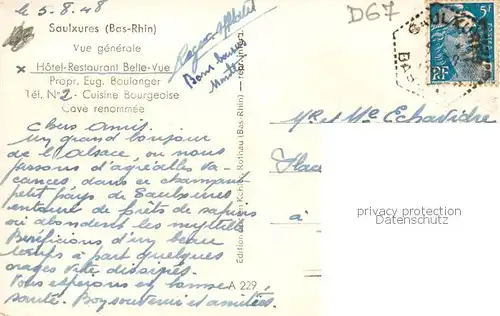 le 5.8.48
D67
Saulxures (Bas-Rhin)
Vue générale
x Hôtel-Restaurant Belle-Vue
Propr. Eug. Boulanger
Tél. No 2 - Cuisine Bourgeoise
Cave renommée
Chers Amis.
Un grand bonjour
de l'Alsace, où nous
passons d'agréables va-
cances, dans ce charmant
petit pays de Saulxures
entouré de forêts de sapins
où abondent les myrtilles
Bénéficions d'un beau
temps à part quelques
orages vite dissipés.
Vous espérons en bonne
santé. Bon souvenir et amitiés.
Bons baisers
Edition Kchler, Rothau (Bas-Rhin) — reprod. interd.
A 229
5F
RF
SAULXURES
BAS
Mr et Me Echavidre
Place
à
privacy protection
Datenschutz